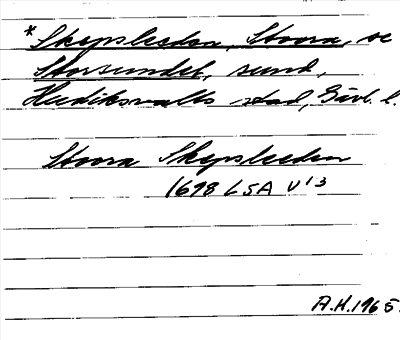 * Skepsleden, Stoora, se
Storsundet, sund,
Hudiksvalls stad, Gävl. l.
Stoora Skepsleeden
1698 LSA U13
A.H. 1965.